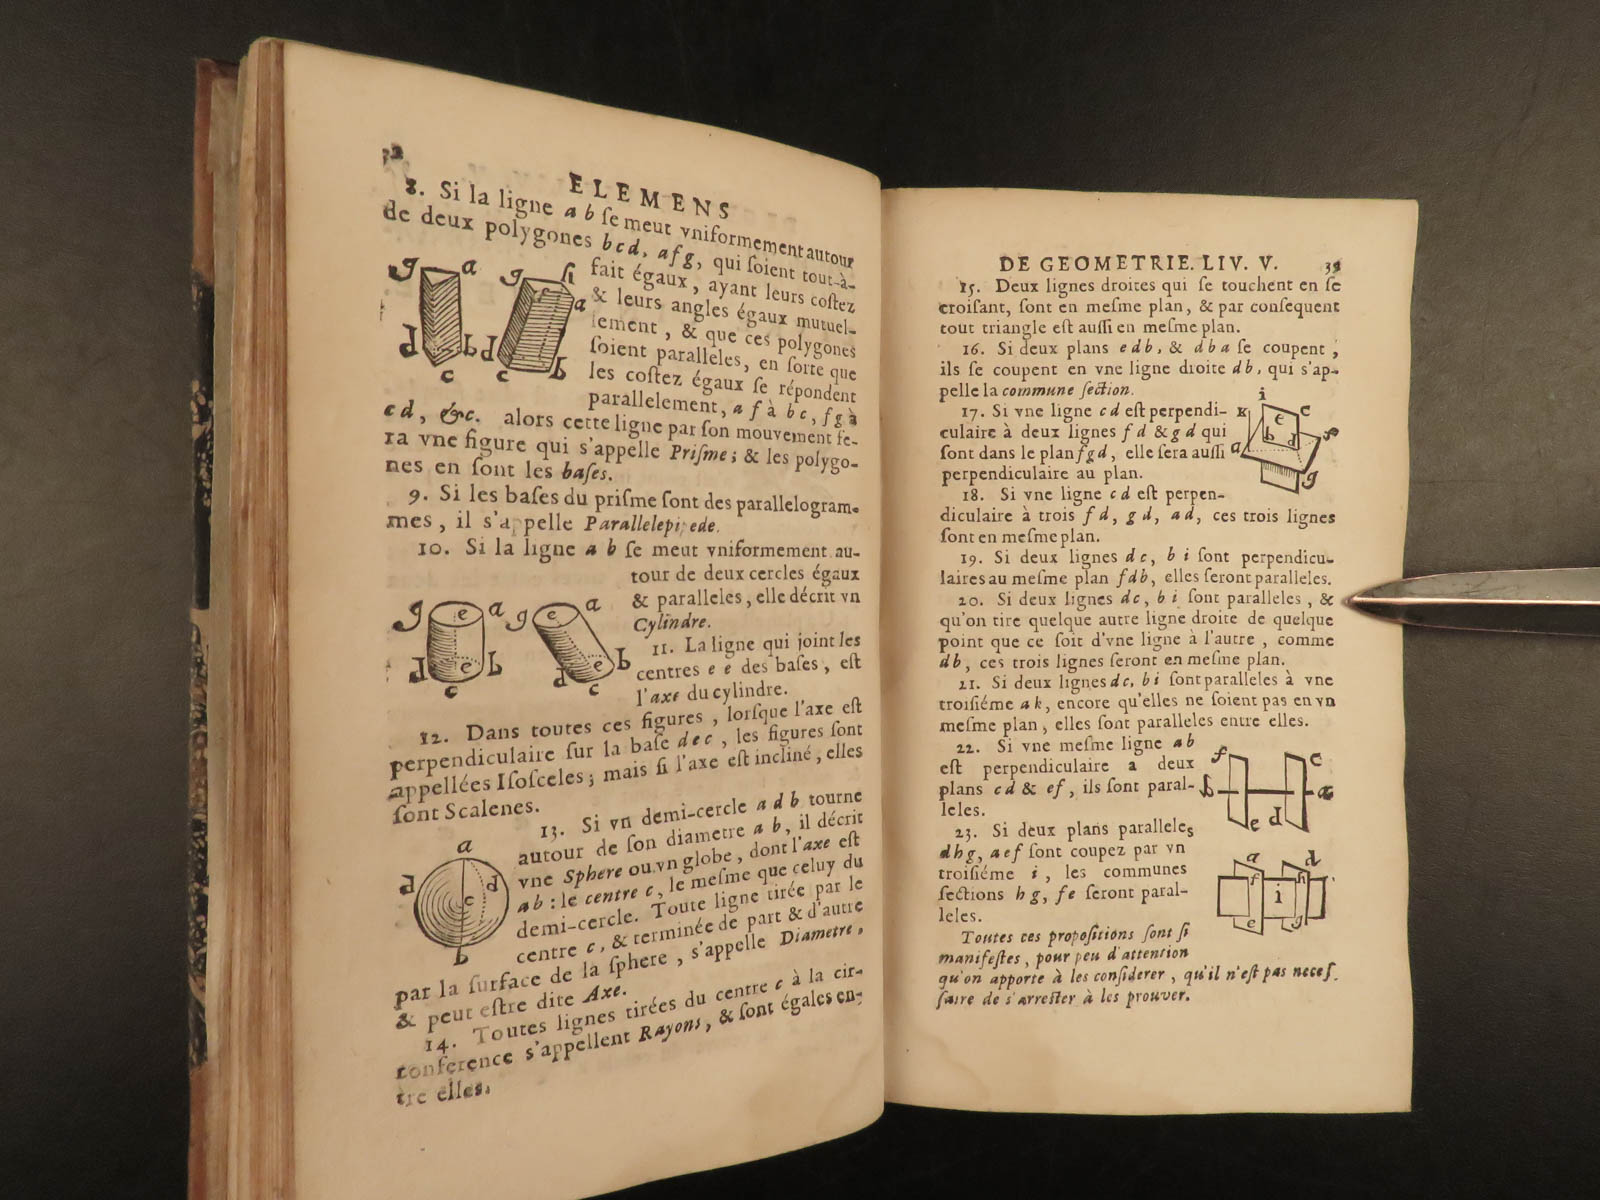 32
ELEMENS
8. Si la ligne a b ſe meut vniformement autour
de deux polygones bcd, afg, qui ſoient tout-à-
fait égaux, ayant leurs coſtez
& leurs angles égaux mutuel-
lement, & que ces polygones
ſoient paralleles, en ſorte que
les coſtez égaux ſe répondent
parallelement, a f à bc, fg à
cd, &c. alors cette ligne par ſon mouvement fe-
ra vne figure qui s'appelle Priſme; & les polygo-
nes en ſont les baſes.
g a g h a
d b c d c b
9. Si les baſes du priſme ſont des parallelogram-
mes, il s'appelle Parallelepipede.
10. Si la ligne a b ſe meut vniformement au-
tour de deux cercles égaux
& paralleles, elle décrit vn
Cylindre.
g e a g e a
d e b c d e b c
11. La ligne qui joint les
centres e e des baſes, eſt
l'axe du cylindre.
12. Dans toutes ces figures, lorſque l'axe eſt
perpendiculaire ſur la baſe dec, les figures ſont
appellées Iſoſceles; mais ſi l'axe eſt incliné, elles
ſont Scalenes.
13. Si vn demi-cercle adb tourne
autour de ſon diametre ab, il décrit
vne Sphere ou vn globe, dont l'axe eſt
ab: le centre c, le meſme que celuy du
demi-cercle. Toute ligne tirée par le
centre c, & terminée de part & d'autre
par la ſurface de la ſphere, s'appelle Diametre,
& peut eſtre dite Axe.
a d d c b
14. Toutes lignes tirées du centre c à la cir-
conference s'appellent Rayons, & ſont égales en-
tre elles.
DE GEOMETRIE. LIV. V.
15. Deux lignes droites qui ſe touchent en ſe
croiſant, ſont en meſme plan, & par conſequent
tout triangle eſt auſſi en meſme plan.
16. Si deux plans edb, & dba ſe coupent,
ils ſe coupent en vne ligne droite db, qui s'ap-
pelle la commune ſection.
17. Si vne ligne cd eſt perpendi-
culaire à deux lignes fd & gd qui
ſont dans le plan fgd, elle ſera auſſi
perpendiculaire au plan.
i k c e b d a f g
18. Si vne ligne cd eſt perpen-
diculaire à trois fd, gd, ad, ces trois lignes
ſont en meſme plan.
19. Si deux lignes dc, bi ſont perpendicu-
laires au meſme plan fdb, elles ſeront paralleles.
20. Si deux lignes dc, bi ſont paralleles, &
qu'on tire quelque autre ligne droite de quelque
point que ce ſoit d'vne ligne à l'autre, comme
db, ces trois lignes ſeront en meſme plan.
21. Si deux lignes dc, bi ſont paralleles à vne
troiſiéme ak, encore qu'elles ne ſoient pas en vn
meſme plan, elles ſont paralleles entre elles.
22. Si vne meſme ligne ab
eſt perpendiculaire a deux
plans cd & ef, ils ſont paral-
leles.
f c b a e d
23. Si deux plans paralleles
dhg, aef ſont coupez par vn
troiſiéme i, les communes
ſections hg, fe ſeront paral-
leles.
a d f h i e g
Toutes ces propoſitions ſont ſi
manifeſtes, pour peu d'attention
qu'on apporte à les conſiderer, qu'il n'eſt pas neceſ-
ſaire de s'arreſter à les prouver.